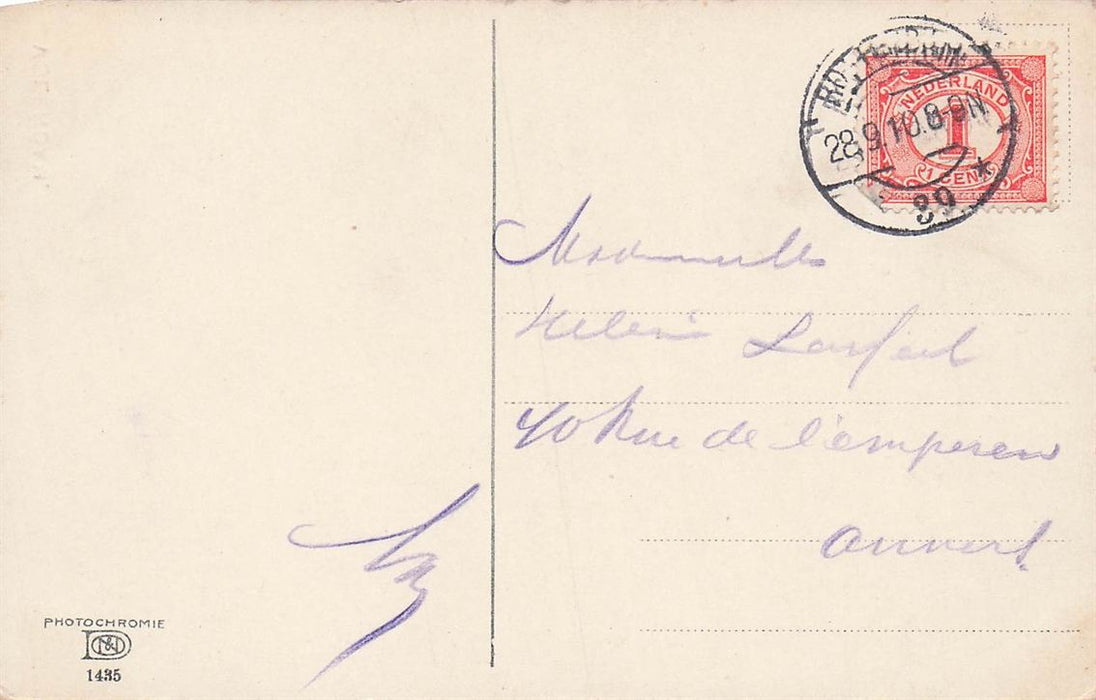 ROTTERDAM
28.9.10.8-9N
*
39
NEDERLAND
1
1 CENT
Mademoiselle
Helene
40 Rue de l'empereur
Anvers
PHOTOCHROMIE
D&N
1435